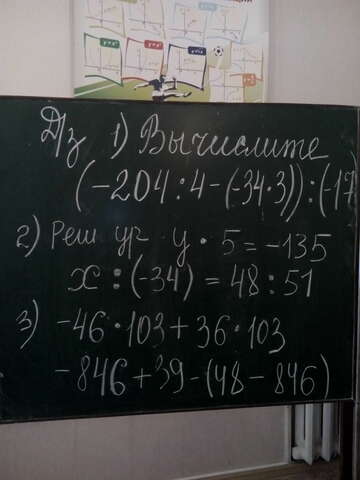 Дз 1) Вычислите
(-204:4-(-34·3)):(-17
2) Реш ур y · 5 = -135
x : (-34) = 48 : 51
3) -46·103 + 36·103
-846+39-(48-846)